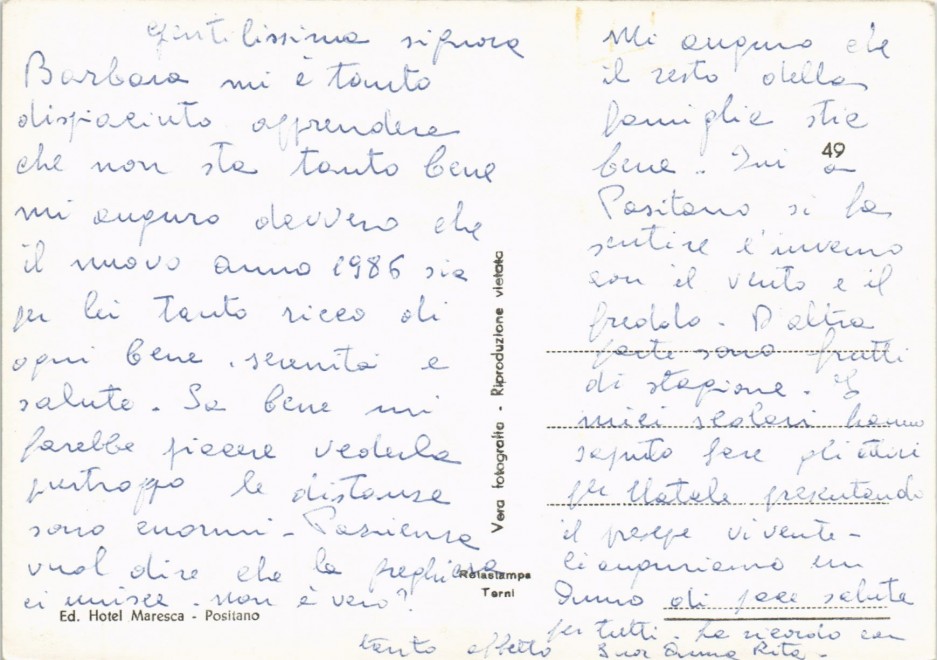 Gentilissima signora
Barbara mi è tanto
dispiaciuto apprendere
che non sta tanto bene
mi auguro davvero che
il nuovo anno 1986 sia
per lei tanto ricco di
ogni bene, serenità e
salute. Sa bene mi
farebbe piacere vederla
purtroppo le distanze
sono enormi - Pazienza
vuol dire che la preghiera
ci unisce. non è vero?
Mi auguro che
il resto della
famiglia stia
bene. Qui a
49
Positano si fa
sentire l'inverno
con il vento e il
freddo. D'altra
parte sono frutti
di stagione. I
miei scolari hanno
saputo fare gli attori
per Natale presentando
il presepe vivente -
Le auguriamo un
Anno di pace salute
per tutti. La ricordo con
tanto affetto Suor Anna Rita -
Vera fotografia - Riproduzione vietata
Rotastampa
Terni
Ed. Hotel Maresca - Positano